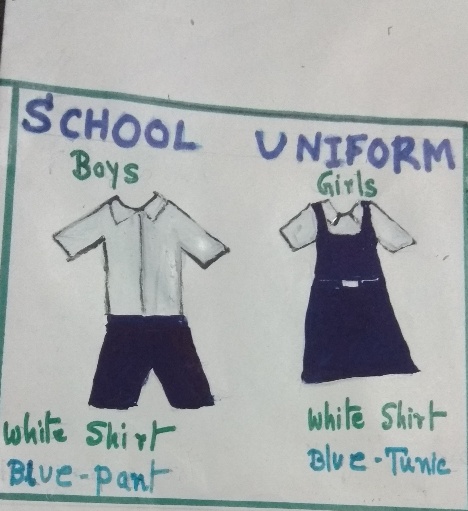 SCHOOL UNIFORM
Boys
Girls
White Shirt
Blue-pant
White Shirt
Blue-Tunic